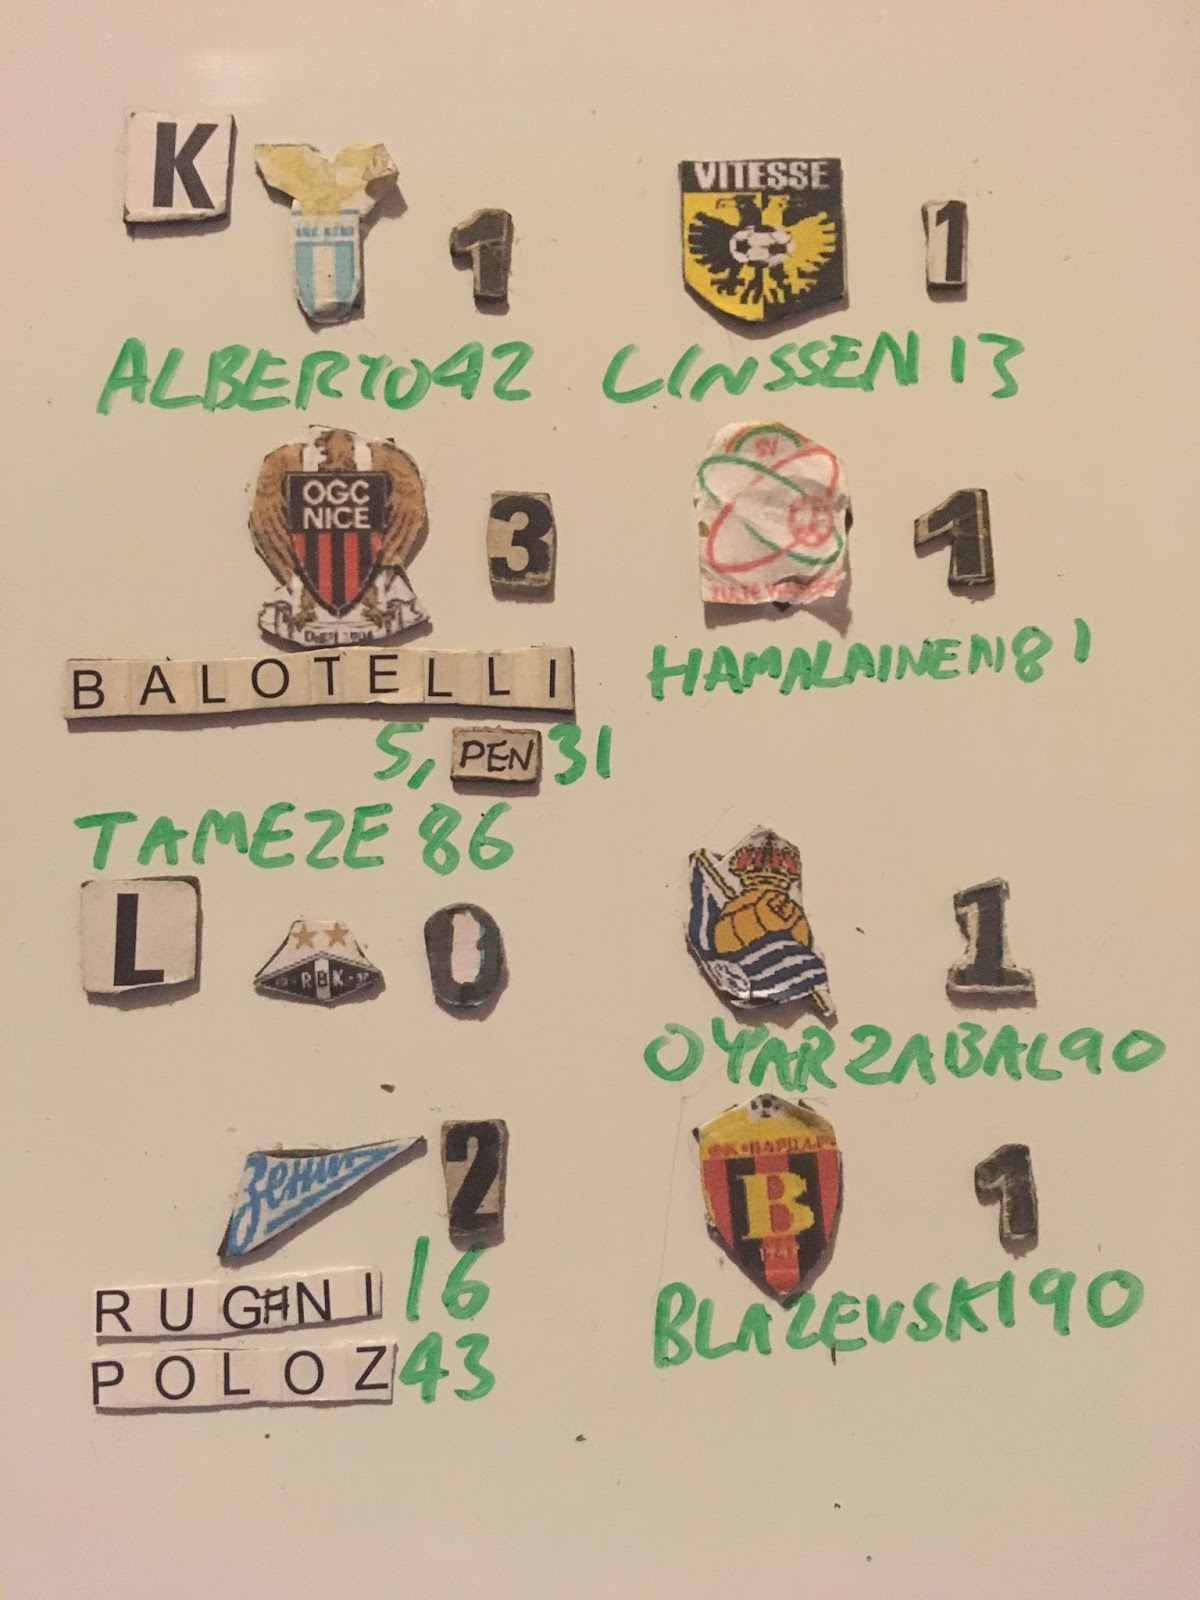 K
1
VITESSE
1
ALBERTO42
LINSSEN 13
OGC
NICE
3
1
BALOTELLI
HAMALAINEN81
5, PEN 31
TAMEZE 86
L
RBK
0
1
OYARZABAL90
Зенит
2
В
1
RUGANI 16
BLAZEVSKI90
POLOZ 43